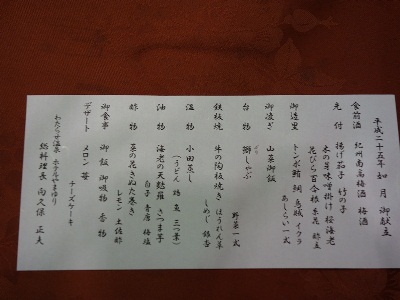 平成二十五年 如月 御献立
食前酒 紀州南高梅酒 梅酒
先付 揚げ茄子 竹の子
木の芽味噌掛け 桜海老
花びら百合根 糸花 酢立
御造里 トンボ鮪 鯛 烏賊 イクラ
あしらい一式
御凌ぎ 山菜御飯
台物 鰤しゃぶ
野菜一式
鉄板焼 牛の陶板焼き ほうれん草
しめじ 銀杏
温物 小田蒸し
(うどん 鶏 魚 三つ葉)
油物 海老の天麩羅 さつま芋
白子 青唐 梅塩
酢物 菜の花きぬた巻き
レモン 土佐酢
御食事 御飯 御吸物 香物
デザート メロン 苺
チーズケーキ
わたらせ温泉 ホテルやまゆり
総料理長 尚久保 正夫